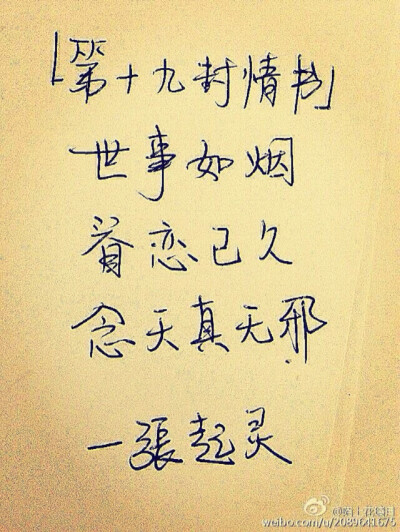 「第十九封情书」
世事如烟
眷恋已久
念天真无邪
—張起灵
weibo.com/u/2089641675